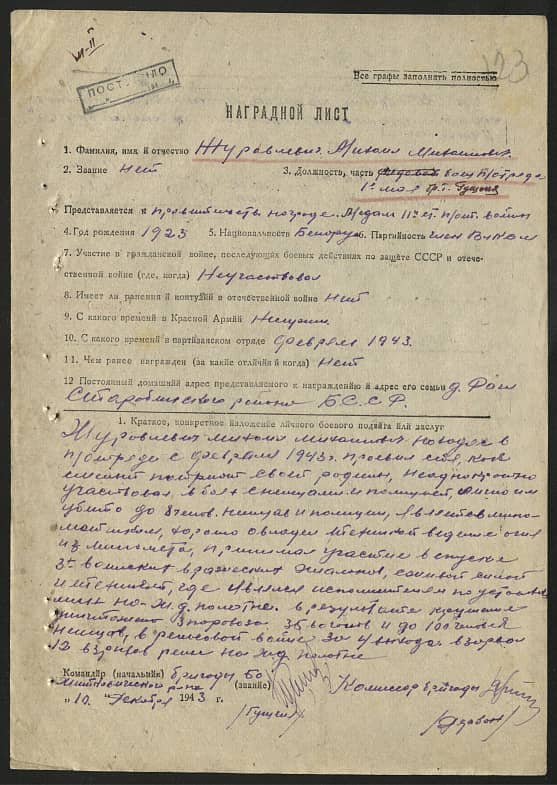 VI-II
123
ПОСТУПИЛО
Все графы заполнять полностью
НАГРАДНОЙ ЛИСТ
1. Фамилия, имя и отчество Журавлевич Михаил Михайлович.
2. Звание нет 3. Должность, часть боец п/отряда
1е мая бр. т. Гущина
Представляется к правительств. награде Медаль IIой ст. парт. войны
4. Год рождения 1923 5. Национальность Белорус 6. Партийность член ВЛКСМ
7. Участие в гражданской войне, последующих боевых действиях по защите СССР и отече-
ственной войне (где, когда) Не участвовал
8. Имеет ли ранения и контузии в отечественной войне нет
9. С какого времени в Красной Армии
10. С какого времени в партизанском отряде февраль 1943.
11. Чем ранее награжден (за какие отличия и когда) нет
12 Постоянный домашний адрес представляемого к награждению и адрес его семьи д.
Старобинского района Б.С.С.Р.
1. Краткое, конкретное изложение личного боевого подвига или заслуг
Журавлевич Михаил Михайлович находясь в
п/отряде с февраля 1943г. проявил себя, как
патриот своей родины, неоднократно
участвовал в боях с немцами и полицией, лично им
убито до 8 челов. немцев и полиции, является мино-
метчиком, хорошо овладел техникой ведения огня
из миномета, принимал участие в спуске
3х воинских вражеских эшелонов, с живой силой
и техникой, где являлся исполнителем по установке
мин на ж.д. полотне. в результате крушения
уничтожено 3 паровоза 35 вагонов и до 100 человек
немцев, в рельсовой войне за 4 выхода взорвал
12 взрывов рельс на ж.д. полотне
Командир (начальник) бригады
района (звание) Комиссар бригады
"10" декабря 1943 г. /Гущин/